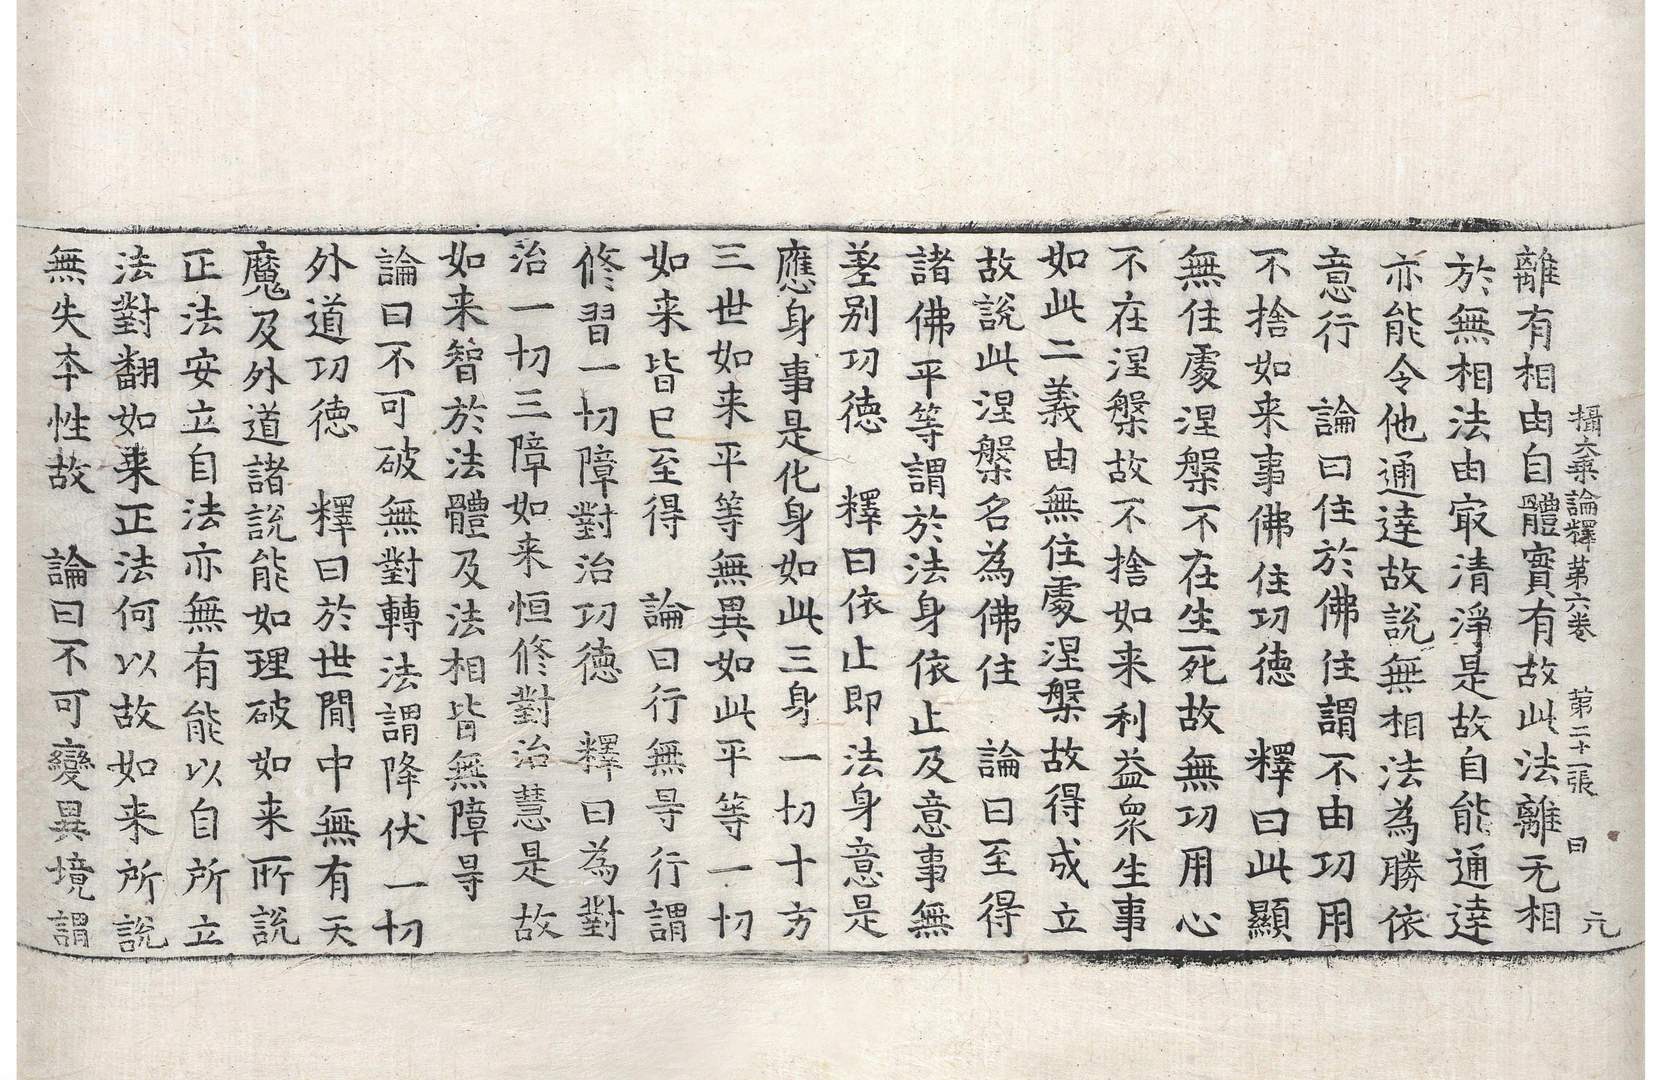 攝大乗論釋第六卷　第二十一張　曰　元
離有相由自體實有故此法離无相
於無相法由㝡清淨是故自能通達
亦能令他通達故說無相法為勝依
意行　論曰住於佛住謂不由功用
不捨如来事佛住功德　釋曰此顯
無住處涅槃不在生死故無功用心
不在涅槃故不捨如来利益衆生事
如此二義由無住處涅槃故得成立
故說此涅槃名為佛住　論曰至得
諸佛平等謂於法身依止及意事無
差别功徳　釋曰依止即法身意是
應身事是化身如此三身一切十方
三世如来平等無異如此平等一切
如来皆已至得　論曰行無㝵行謂
修習一切障對治功德　釋曰為對
治一切三障如来恒修對治慧是故
如来智於法體及法相皆無障㝵
論曰不可破無對轉法謂降伏一切
外道功徳　釋曰於世間中無有天
魔及外道諸說能如理破如来所說
正法安立自法亦無有能以自所立
法對翻如来正法何以故如来所說
無失夲性故　論曰不可變異境謂